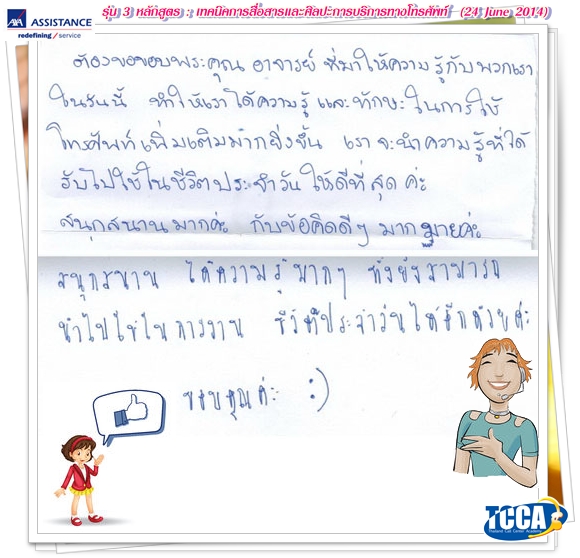 รุ่น 3 หลักสูตร : เทคนิคการสื่อสารและศิลปะการบริการทางโทรศัพท์ (24 June 2014)
AXA ASSISTANCE
redefining / service
ต้องขอขอบพระคุณ อาจารย์ ที่มาให้ความรู้กับพวกเรา
ในวันนี้ ทำให้เราได้ความรู้ และทักษะในการใช้
โทรศัพท์เพิ่มเติมมากยิ่งขึ้น เราจะนำความรู้ที่ได้
รับไปใช้ในชีวิตประจำวันให้ดีที่สุดค่ะ
สนุกสนานมากค่ะ กับข้อคิดดีๆ มากมายค่ะ
สนุกสนาน ได้ความรู้มากๆ ทั้งยังสามารถ
นำไปใช้ในการงาน ชีวิตประจำวันได้อีกด้วยค่ะ
ขอบคุณค่ะ :)
TCCA
Thailand Call Center Academy